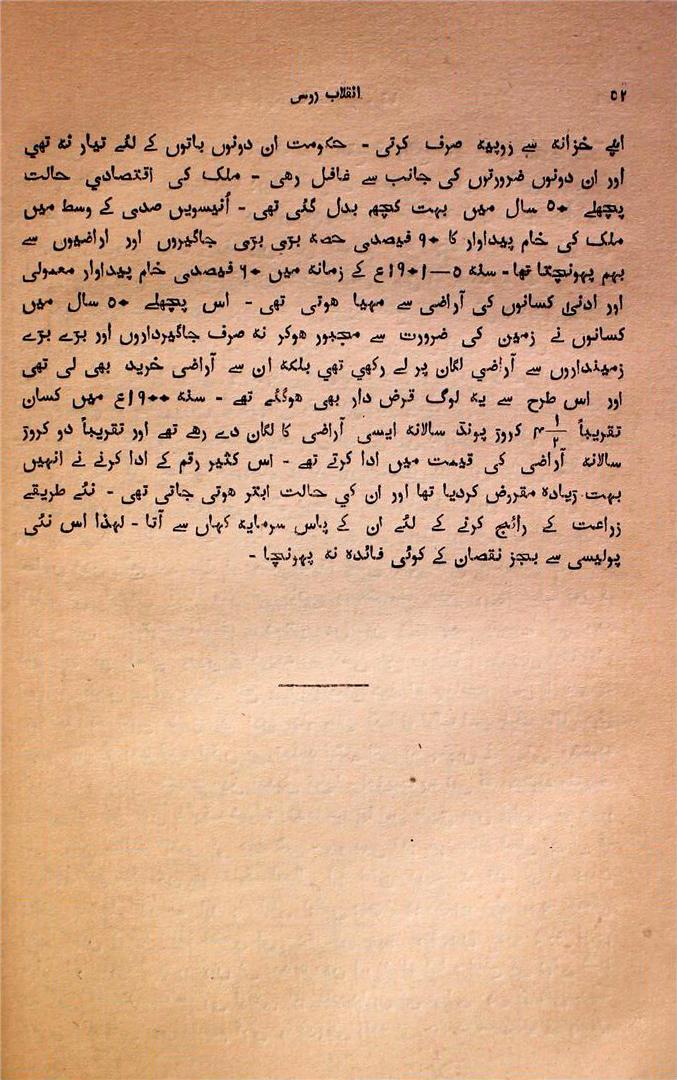 ۵۲
انقلاب روس
اپنے خزانہ سے روپیہ صرف کرتی - حکومت ان دونوں باتوں کے لئے تیار نہ تھی
اور ان دونوں ضرورتوں کی جانب سے غافل رھی - ملک کی اقتصادی حالت
پچھلے ۵۰ سال میں بہت کچھ بدل گئی تھی - اُنیسویں صدی کے وسط میں
ملک کی خام پیداوار کا ۹۰ فیصدی حصہ بڑی بڑی جاگیروں اور اراضیوں سے
بہم پہونچتا تھا - سنہ ۵—۱۹۰۱ع کے زمانہ میں ۶۰ فیصدی خام پیداوار معمولی
اور ادنیٰ کسانوں کی آراضی سے مہیا ھوتی تھی - اس پچھلے ۵۰ سال میں
کسانوں نے زمین کی ضرورت سے مجبور ھوکر نہ صرف جاگیرداروں اور بڑے بڑے
زمینداروں سے آراضی لگان پر لے رکھی تھی بلکہ ان سے آراضی خرید بھی لی تھی
اور اس طرح سے یہ لوگ قرض دار بھی ھوگئے تھے - سنہ ۱۹۰۰ع میں کسان
تقریباً ۴ ۱/۲ کروڑ پونڈ سالانہ ایسی آراضی کا لگان دے رھے تھے اور تقریباً دو کروڑ
سالانہ آراضی کی قیمت میں ادا کرتے تھے - اس کثیر رقم کے ادا کرنے نے انہیں
بہت زیادہ مقروض کردیا تھا اور ان کی حالت ابتر ھوتی جاتی تھی - نئے طریقے
زراعت کے رائج کرنے کے لئے ان کے پاس سرمایہ کہاں سے آتا - لہذا اس نئی
پولیسی سے بجز نقصان کے کوئی فائدہ نہ پہونچا -